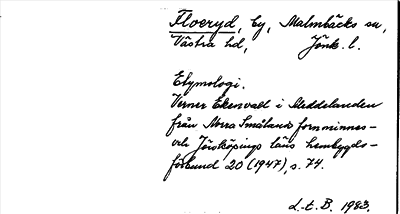 Floeryd, by, Malmbäcks sn,
Västra hd, Jönk. l.
Etymologi.
Verner Ekenvald i Meddelanden
från Norra Smålands fornminnes-
och Jönköpings läns hembygds-
förbund 20 (1947), s. 74.
L.-t. B. 1983.